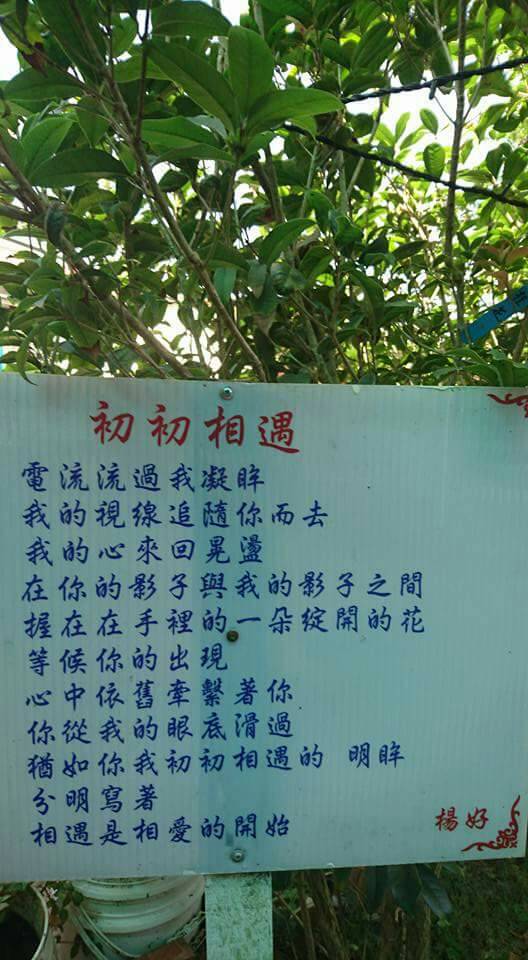 初初相遇
電流流過我凝眸
我的視線追隨你而去
我的心來回晃盪
在你的影子與我的影子之間
握在在手裡的一朵綻開的花
等候你的出現
心中依舊牽繫著你
你從我的眼底滑過
猶如你我初初相遇的 明眸
分明寫著
相遇是相愛的開始
楊好